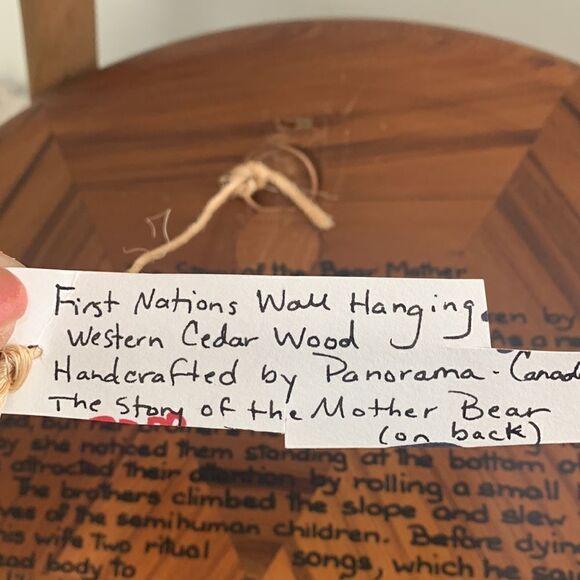 of the Bear Mother
First Nations Wall Hanging
Western Cedar Wood
Handcrafted by Panorama - Canad
The Story of the Mother Bear
(on back)
by she noticed them standing at the bottom of
attracted their attention by rolling a small
The brothers climbed the slope and slew
of the semihuman children. Before dying
his wife Two ritual songs, which he
body to